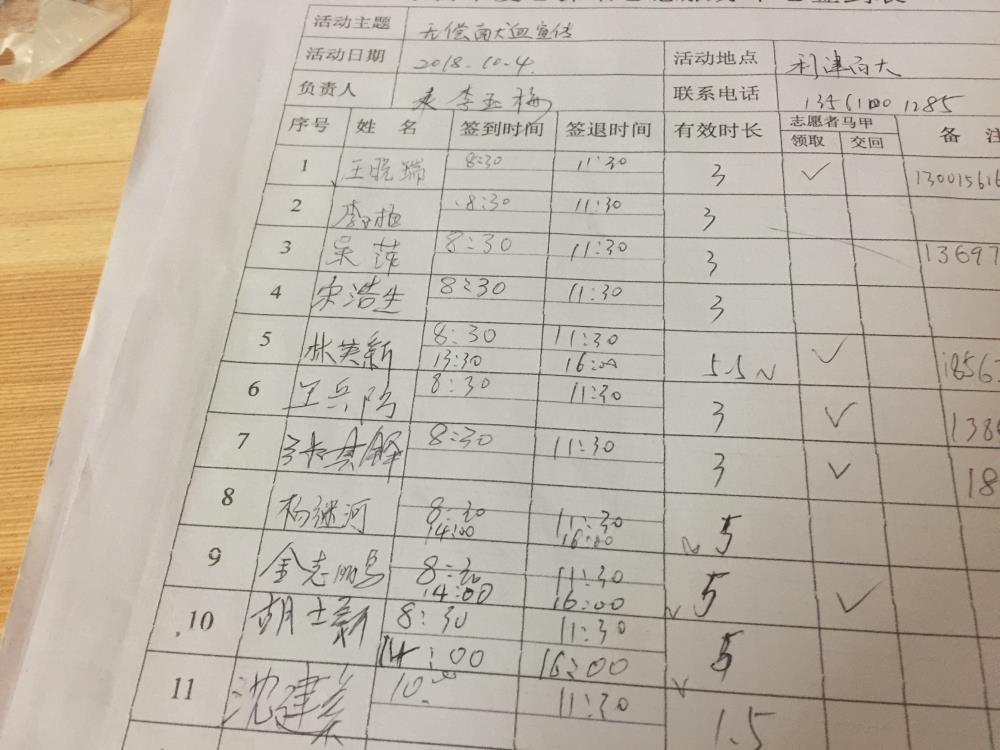 活动主题 无偿献血宣传
活动日期 2018.10.4. 活动地点 利津百大
负责人 李玉梅 联系电话 13561001285
序号 姓 名 签到时间 签退时间 有效时长 志愿者马甲 备 注
领取 交回
1 王晓瑞 8:30 11:30 3 ✓ 130015616
2 8:30 11:30 3
3 吴萍 8:30 11:30 3 13697
4 宋浩生 8:30 11:30 3
5 林英新 8:30 11:30 5.5 ✓ 1856
13:30 16:00
6 王兵 8:30 11:30 3 ✓ 138
7 张其锋 8:30 11:30 3 ✓ 18
8 杨继河 8:30 11:30 5
14:00 16:00
9 金志鹏 8:30 11:30 5 ✓
14:00 16:00
10 胡士新 8:30 11:30 5
14:00 16:00
11 沈建美 10:00 11:30 1.5